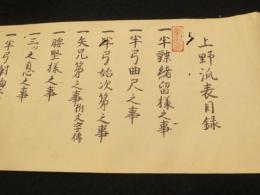 上野派表目録
一半弓弽緒留様之事
一半弓曲尺之事
一半弓始次第之事
一矢兄弟之事 附文字傳
一腰堅様之事
一三ツ之息之事
一半弓